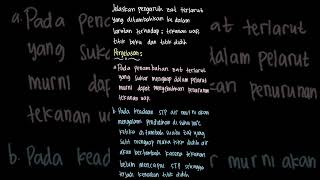 Jelaskan pengaruh zat terlarut
yang ditambahkan ke dalam
larutan terhadap : tekanan uap,
titik beku dan titik didih
Penjelasan :
a. Pada penambahan zat terlarut
yang sukar menguap dalam pelarut
murni dapat menyebabkan penurunan
tekanan uap.
b. Pada keadaan STP air murni akan
mengalami pendidihan di suhu 100°C
ketika ditambah suatu zat yang
sulit menguap maka titik didih air
akan bertambah karena tekanan
belum mencapai STP sehingga
terjadi kenaikan titik didih